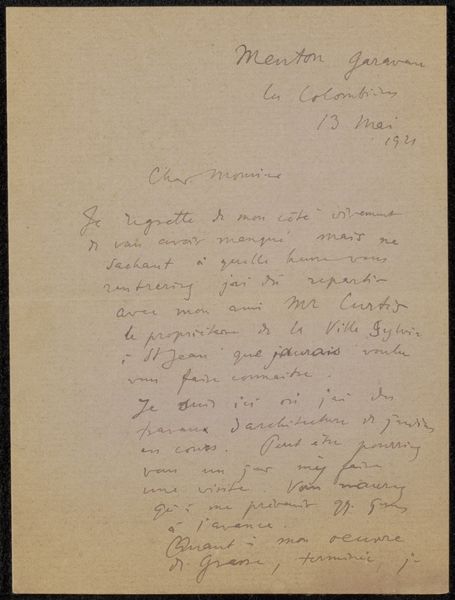 Menton Garavan
les Colombières
13 Mai
1921
Cher Monsieur
Je regrette de mon côté vivement
de vous avoir manqué mais ne
sachant à quelle heure vous
rentreriez j'ai dû repartir
avec mon ami Mr Curtis
le propriétaire de la Villa Sylvia
à St Jean que j'aurais voulu
vous faire connaître.
Je suis ici où j'ai des
travaux d'architecture de jardins
en cours. Peut être pourriez
vous un jour m'y faire
une visite. Vous n'aurez
qu'à me prévenir qq. jours
à l'avance.
Quant à mon oeuvre
de Grasse, terminée, je